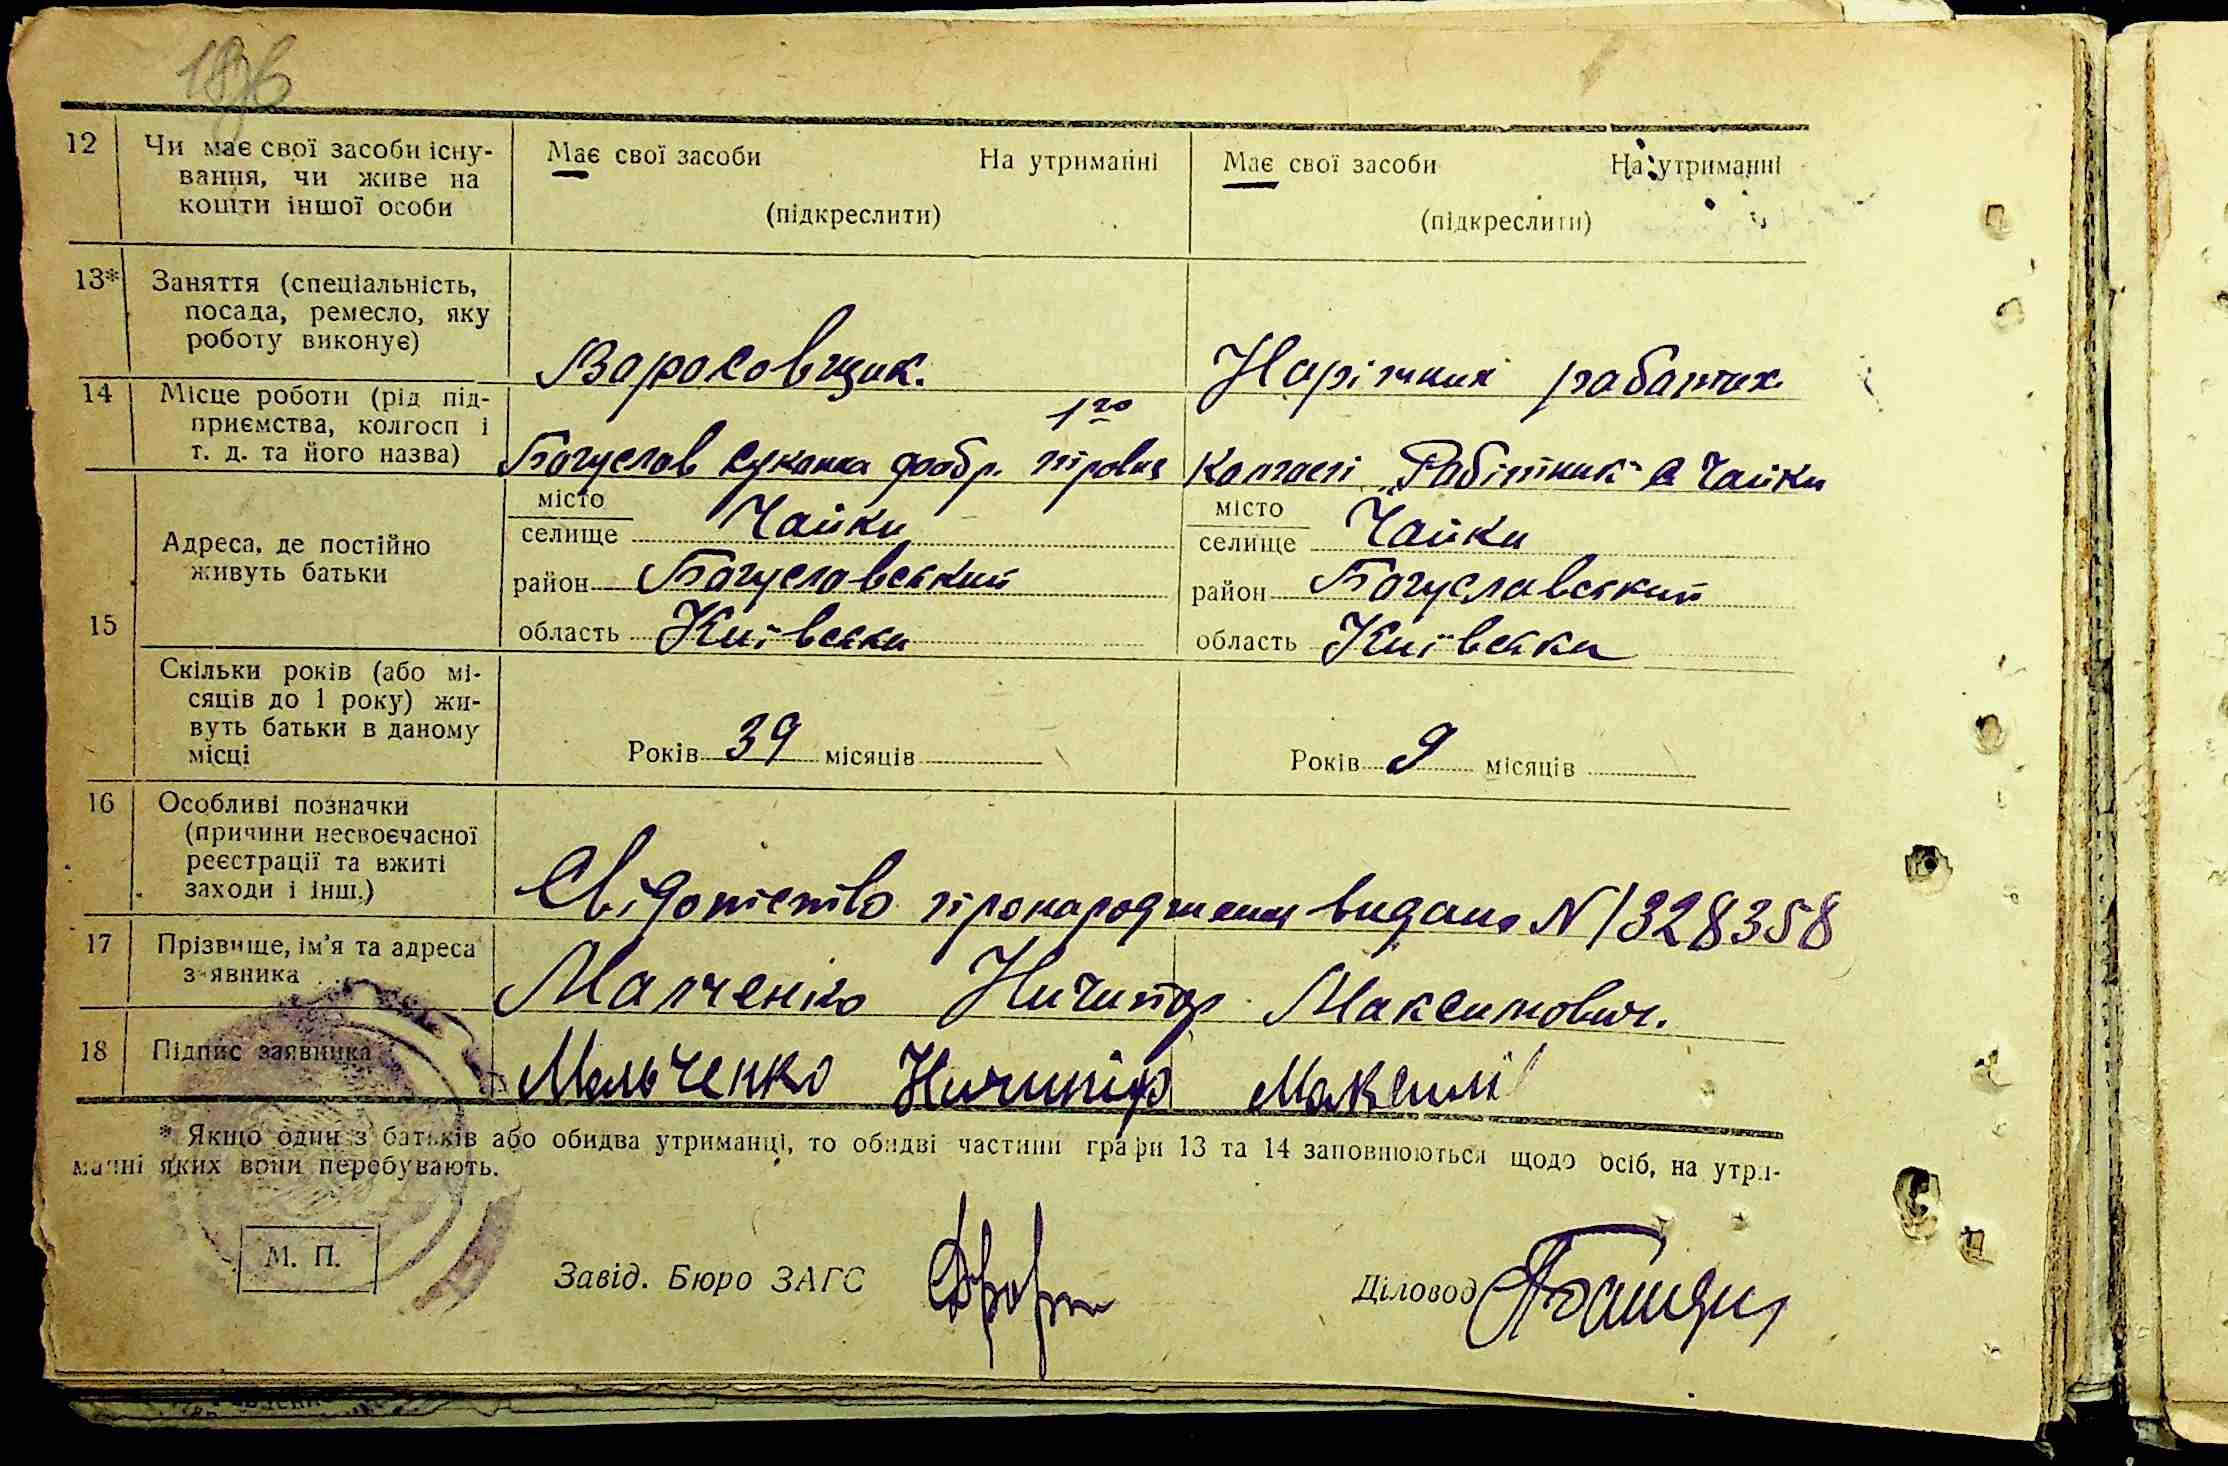 12 Чи має свої засоби існу-
вання, чи живе на
кошти іншої особи
Має свої засоби На утриманні
(підкреслити)
Має свої засоби На утриманні
(підкреслити)
13* Заняття (спеціальність,
посада, ремесло, яку
роботу виконує)
Ворсовщик.
14 Місце роботи (рід під-
приємства, колгосп і
т. д. та його назва)
1го
Богуслав сукона фабр.
Колгосп „Робітник" с Чайки
15 Адреса, де постійно
живуть батьки
місто
селище Чайки
район Богуславський
область Київська
місто
селище Чайки
район Богуславский
область Київська
Скільки років (або мі-
сяців до 1 року) жи-
вуть батьки в даному
місці
Років 39 місяців
Років 9 місяців
16 Особливі позначки
(причини несвоєчасної
реєстрації та вжиті
заходи і інш.)
Свідотство про народження видано № 328358
17 Прізвище, ім'я та адреса
заявника
Малченко Ничипор Максимович.
18 Підпис заявника
Мальченко Ничипір Максим
* Якщо один з батьків або обидва утриманці, то обидві частини графи 13 та 14 заповнюються щодо осіб, на утри-
манні яких вони перебувають.
М. П.
Завід. Бюро ЗАГС
Діловод